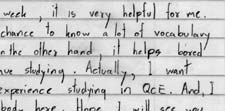 week, it is very helpful for me.
chance to know a lot of vocabulary
n the other hand, it helps bored
ve studying. Actually, I want
experience studying in QCE. And, I
body here. Hope I will see you